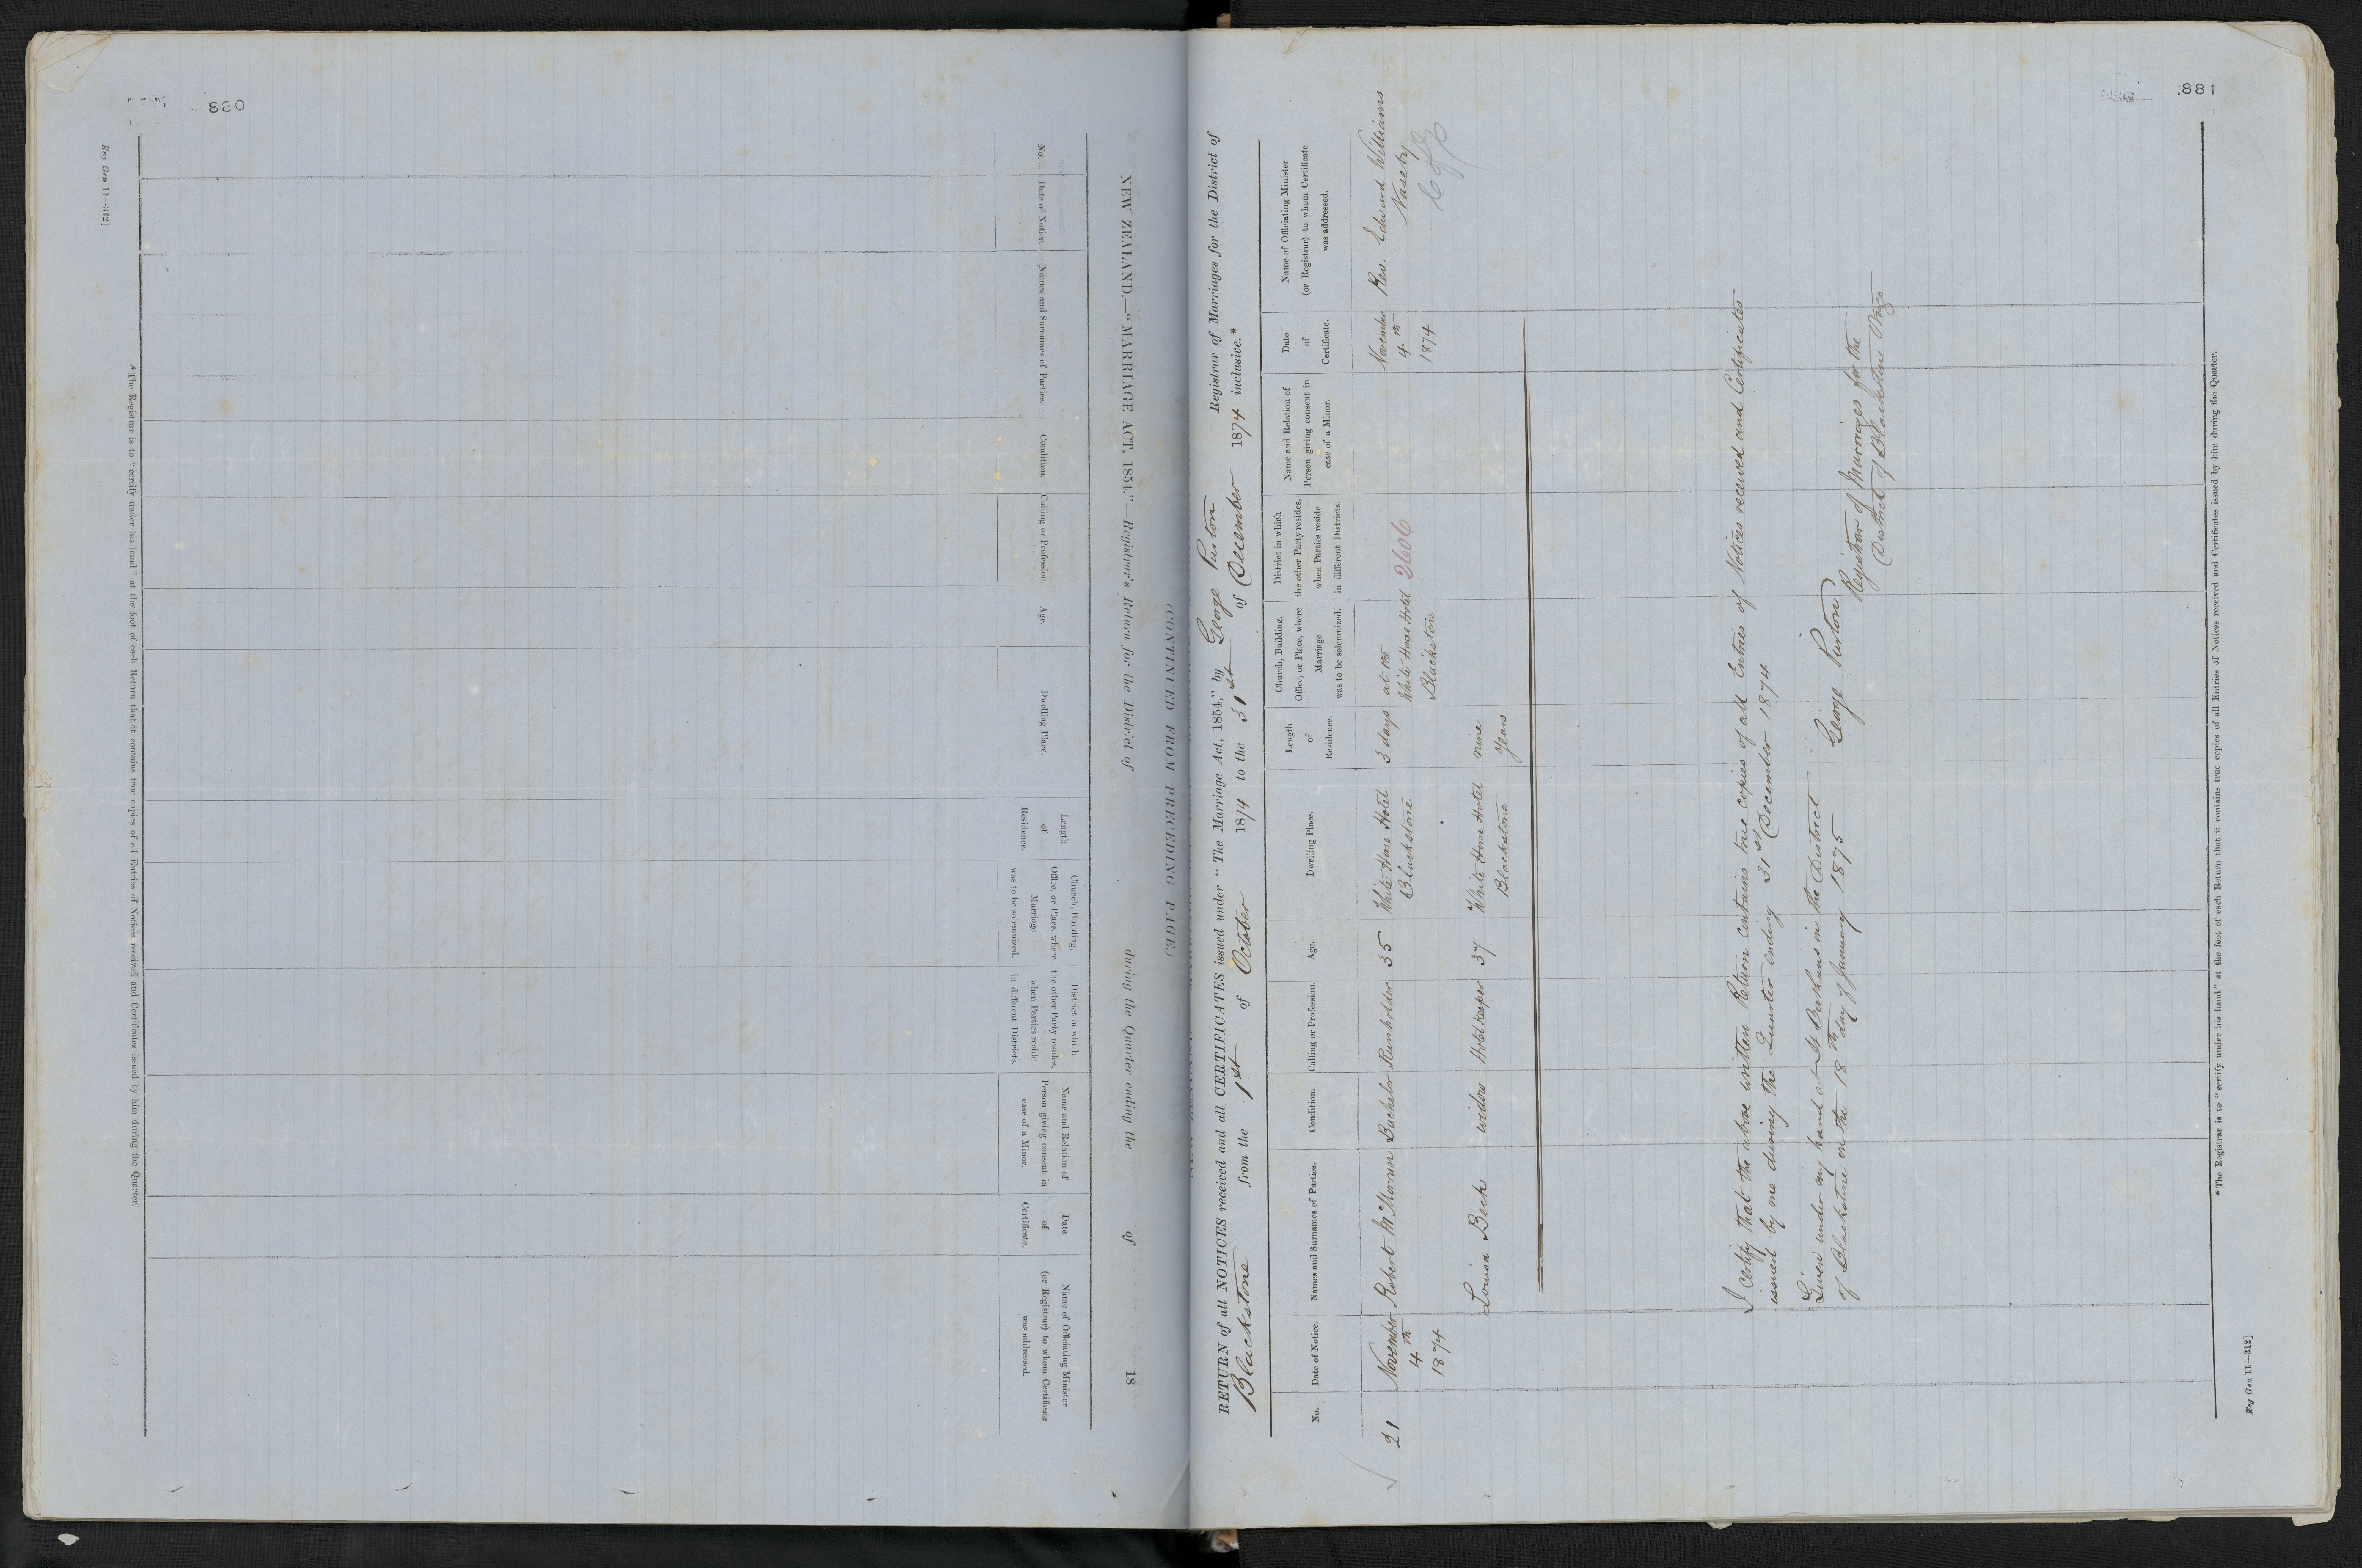 880
NEW ZEALAND.—"MARRIAGE ACT, 1854."—Registrar's Return for the District of during the Quarter ending the of 18
(CONTINUED FROM PRECEDING PAGE.)
No.
Date of Notice.
Names and Surnames of Parties.
Condition.
Calling or Profession.
Age.
Dwelling Place.
Length
of
Residence.
Church, Building,
Office, or Place, where
Marriage
was to be solemnized.
District in which
the other Party resides,
when Parties reside
in different Districts.
Name and Relation of
Person giving consent in
case of a Minor.
Date
of
Certificate.
Name of Officiating Minister
(or Registrar) to whom Certificate
was addressed.
* The Registrar is to "certify under his hand" at the foot of each Return that it contains true copies of all Entries of Notices received and Certificates issued by him during the Quarter.
Reg Gen 11—312]
881
RETURN of all NOTICES received and all CERTIFICATES issued under "The Marriage Act, 1854," by George Purton Registrar of Marriages for the District of
Blackstone from the 1st of October 1874 to the 31st of December 1874 inclusive.*
No.
Date of Notice.
Names and Surnames of Parties.
Condition.
Calling or Profession.
Age.
Dwelling Place.
Length
of
Residence.
Church, Building,
Office, or Place, where
Marriage
was to be solemnized.
District in which
the other Party resides,
when Parties reside
in different Districts.
Name and Relation of
Person giving consent in
case of a Minor.
Date
of
Certificate.
Name of Officiating Minister
(or Registrar) to whom Certificate
was addressed.
21
November
4th
1874
Robert McMorran
Bachelor
Runholder
35
White Horse Hotel
Blackstone
3 days
at the
White Horse Hotel
Blackstone
2606
November
4th
1874
Rev. Edward Williams
Naseby
C of E
Louisa Beck
widow
Hotel Keeper
37
White Horse Hotel
Blackstone
nine
years
I certify that the above written Return contains true copies of all Entries of Notices received and Certificates
issued by me during the Quarter ending 31st December 1874
Given under my hand at St Bathans in the District
of Blackstone on the 18th day of January 1875
George Purton
Registrar of Marriages for the
District of Blackstone Otago
* The Registrar is to "certify under his hand" at the foot of each Return that it contains true copies of all Entries of Notices received and Certificates issued by him during the Quarter.
Reg Gen 11—312]